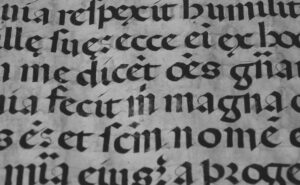 nia respexit humilit
illę suę: ecce ei ex hoc
n me dicēt oēs gñar
ia fecit m̄ magna q
s ē: et scm̄ nomē e
mīa eius: a proge